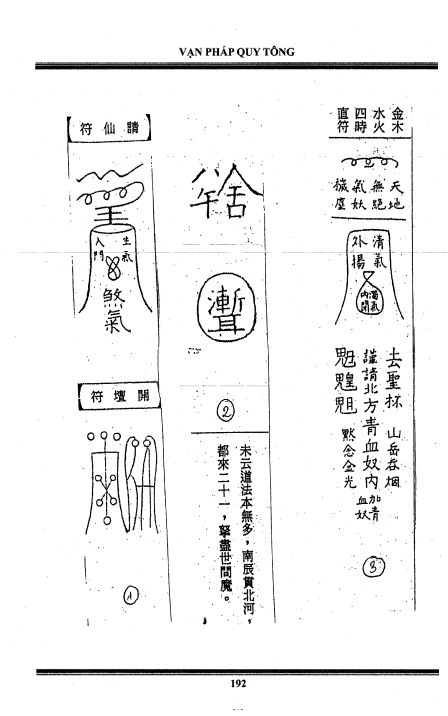 VẠN PHÁP QUY TÔNG
請仙符
生氣
入門
煞氣
開壇符
1
2
未云道法本無多，南辰貫北河，
都來二十一，拏盡世間魔。
金木
水火
四時
直符
天地
無絕
氣妖
穢塵
清氣
外揚
濁氣
內閉
去聖杯 山岳吞烟
謹請北方青血奴內 加青血奴
默念金光
3
192